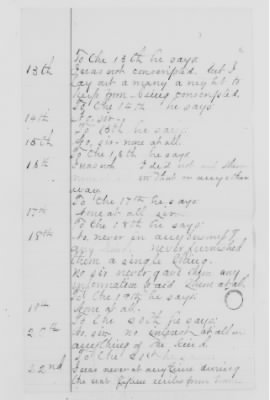 To the 13th he says
13th I was not conscripted. but I
lay out a many a night to
keep from being conscripted.
To the 14th he says
14th No, sir.
To 15th he says
15th No, sir none at all.
To the 16th he says
16th I was not I did not
in that or any other
way.
To the 17th he says
17th None at all sir.
To the 18th he says
18th No, never in any
never furnished
them a single thing.
No sir never gave them any
information to aid them at all.
To the 19th he says
19th None at all.
To the 20th he says
20th No, sir no interest at all in
anything of the kind.
To the
22nd I was never at any time during
the war miles from